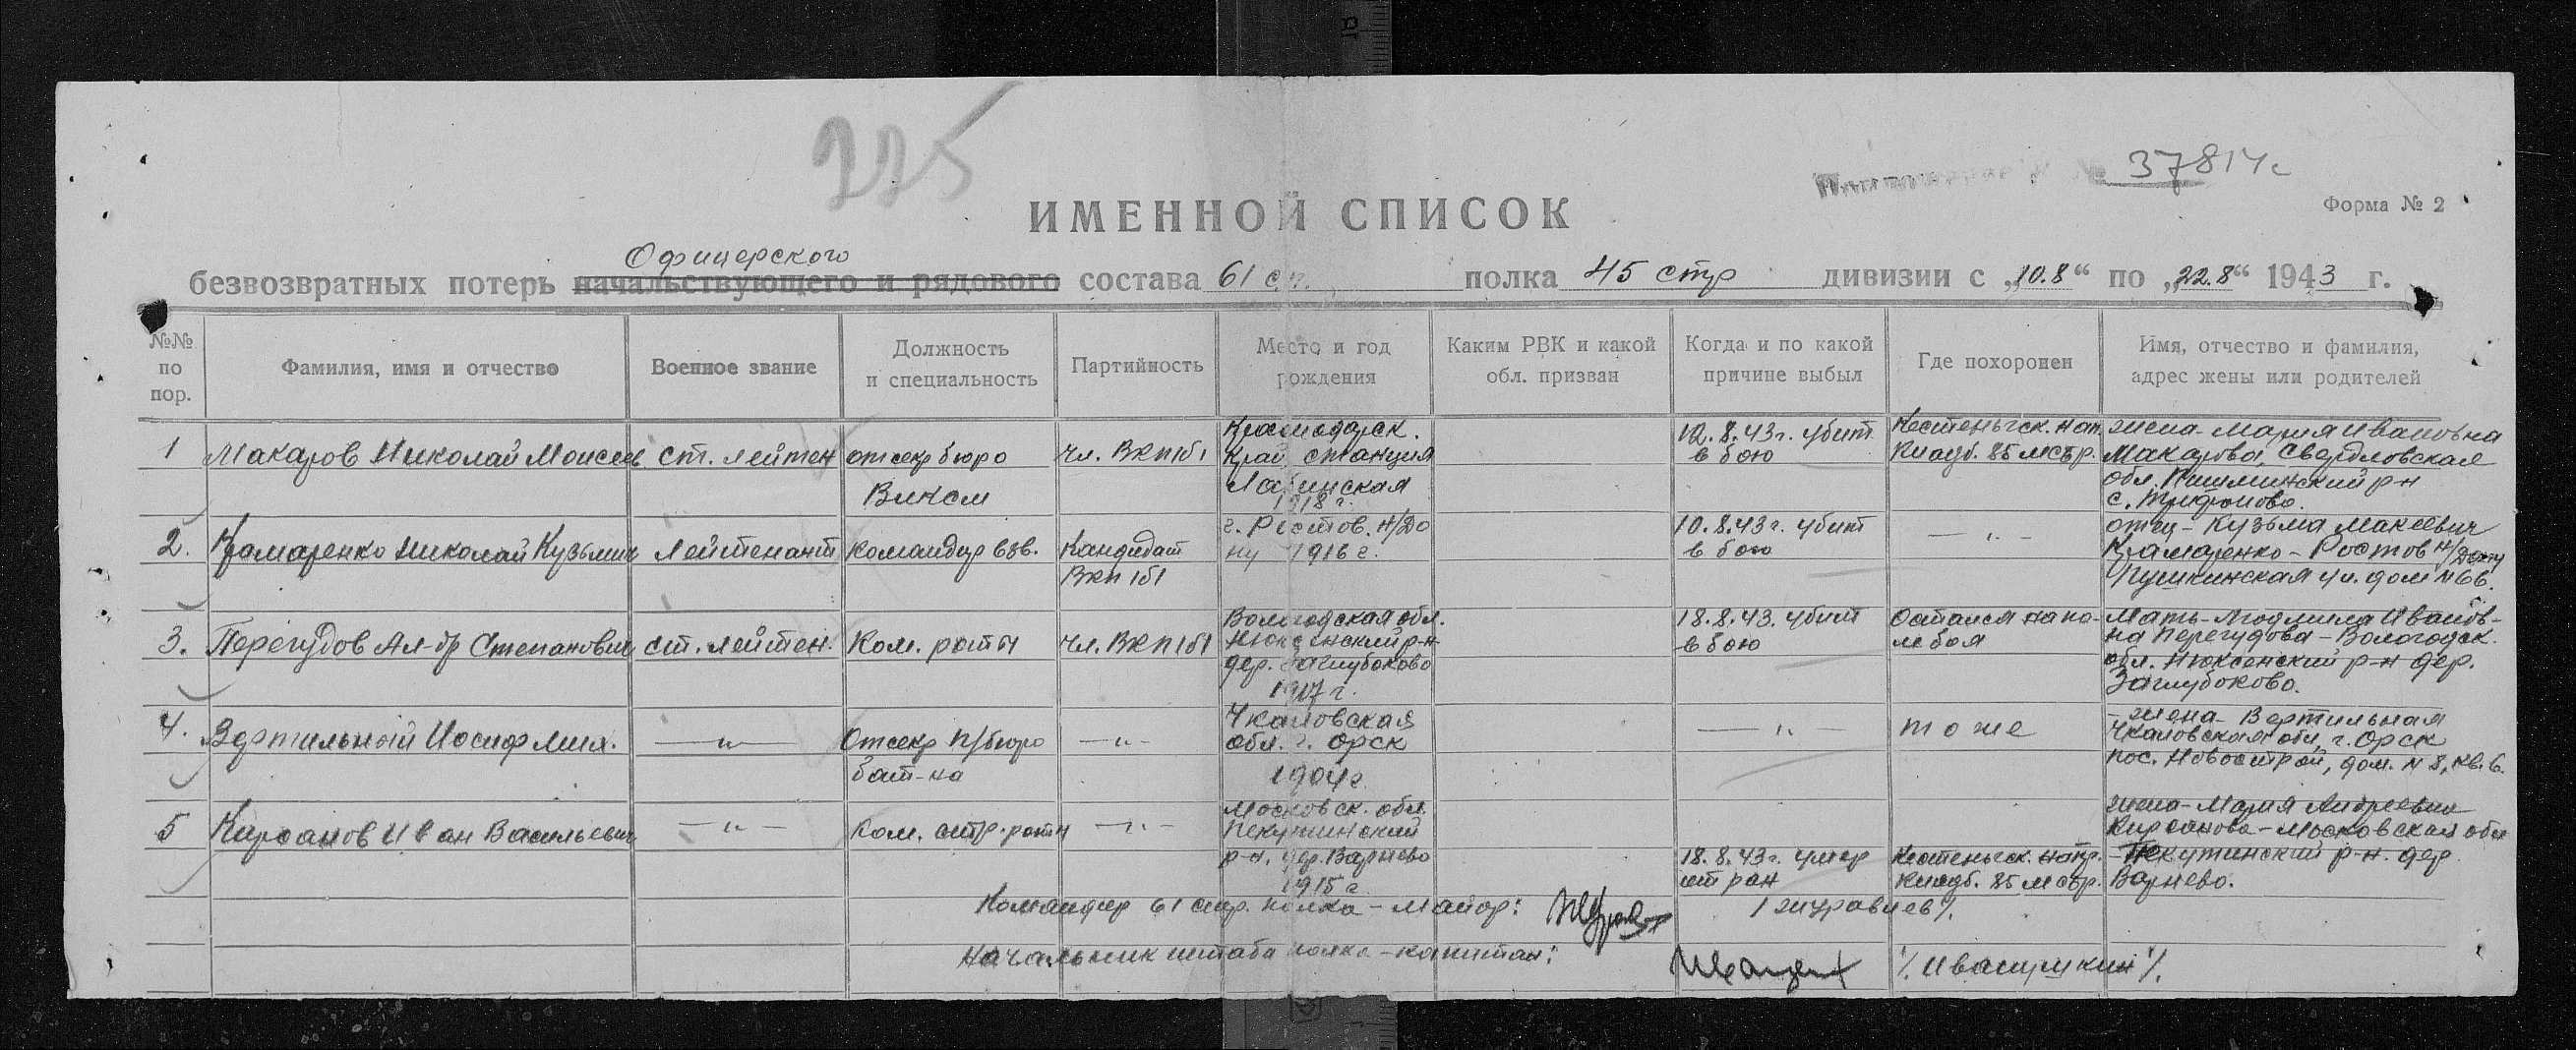 225
37814с
Форма № 2
ИМЕННОЙ СПИСОК
Офицерского
безвозвратных потерь начальствующего и рядового состава 61 сп. полка 45 стр дивизии с „10.8“ по „22.8“ 1943 г.
№№ по пор.
Фамилия, имя и отчество
Военное звание
Должность и специальность
Партийность
Место и год рождения
Каким РВК и какой обл. призван
Когда и по какой причине выбыл
Где похоронен
Имя, отчество и фамилия, адрес жены или родителей
1
Макаров Николай Моисеев
ст. лейтен
отсекр бюро
ВЛКСМ
Чл. ВКП/б/
Краснодарск.
край, станция
Лабинская
1918 г.
12.8.43г. убит
в бою
Кестеньгск. нап.
Кладб. 85 мсбр.
жена - Мария Ивановна
Макарова, Свердловская
обл. Пышминский р-н
с. Трифоново.
2.
Крамаренко Николай Кузьмич
Лейтенант
командир взв.
Кандидат
ВКП/б/
г. Ростов. Н/До
ну 1916 г.
10.8.43г. убит
в бою
— " —
отец - Кузьма Макеевич
Крамаренко - Ростов Н/Дону
Пушкинская ул. дом № 66.
3.
Перегудов Ал-др Степанович
ст. лейтен.
Ком. роты
Чл. ВКП/б/
Вологодская обл.
Нюксенский р-н
дер. Заглубоково
1917 г.
18.8.43. убит
в бою
Остался на по-
ле боя
Мать - Людмила Иванов-
на Перегудова - Вологодск.
обл. Нюксенский р-н дер.
Заглубоково.
4.
Вертильный Иосиф Мих.
— " —
Отсекр п/бюро
бат-на
— " —
Чкаловская
обл. г. Орск
1904г.
— " —
то же
- жена - Вертильная
Чкаловская обл, г. Орск
пос. Новострой, дом. № 8, кв. 6.
5
Кирсанов Иван Васильевич
— " —
Ком. стр. роты
— " —
Московск. обл.
р-н, дер. Варнево
1915 г.
18.8.43г. умер
от ран
Кестеньгск. напр.
Кладб. 85 мсбр.
жена - Мария Андреевна
Кирсанова - Московская обл
р-н. дер.
Варнево.
Командир 61 стр. полка - майор: /Журавлев/.
Начальник штаба полка - капитан: /Ивашушкин/.